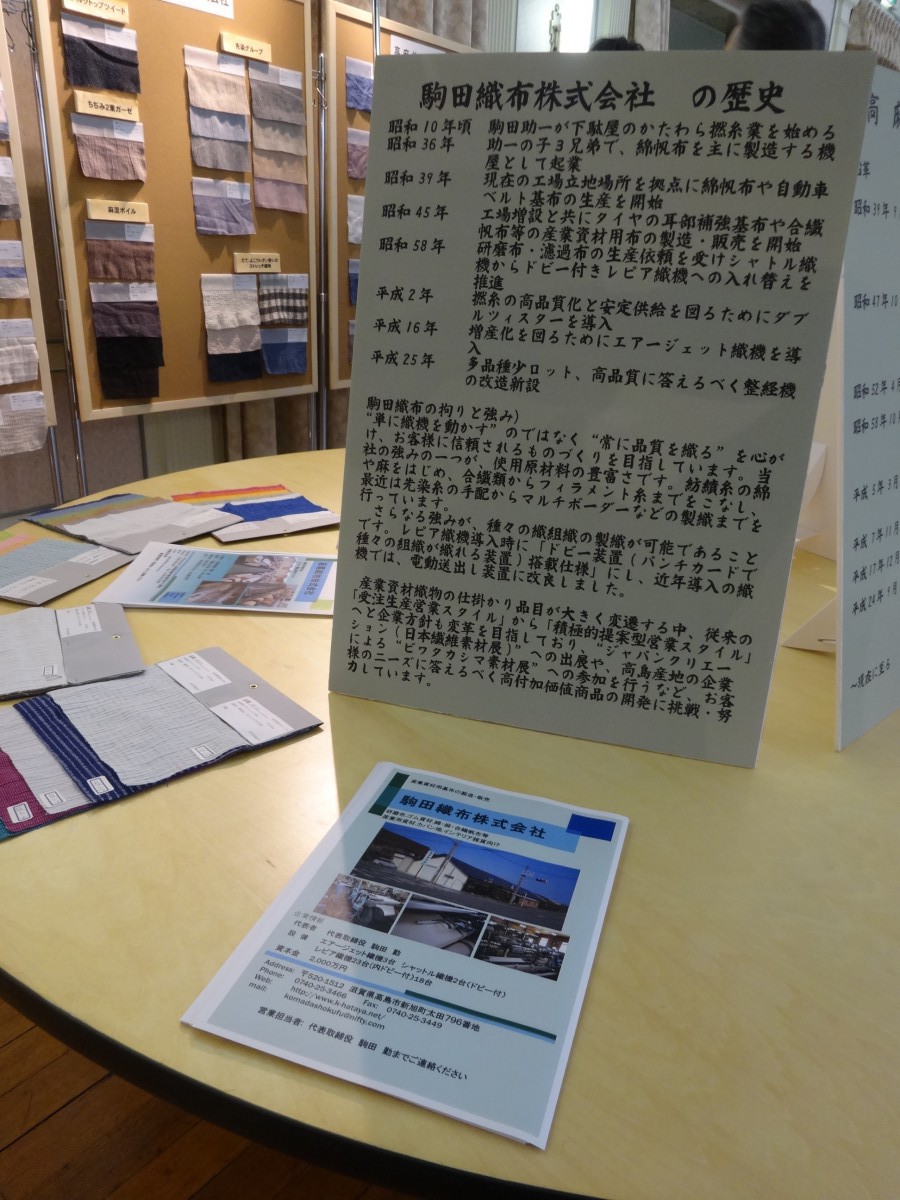 先染グループ
ちぢみ2重ガーゼ
麻混ボイル
駒田織布株式会社 の歴史
昭和10年頃 駒田助一が下駄屋のかたわら撚糸業を始める
昭和36年 助一の子3兄弟で、綿帆布を主に製造する機
屋として起業
昭和39年 現在の工場立地場所を拠点に綿帆布や自動車
ベルト基布の生産を開始
昭和45年 工場増設と共にタイヤの耳部補強基布や合繊
帆布等の産業資材用布の製造・販売を開始
昭和58年 研磨布・濾過布の生産依頼を受けシャトル織
機からドビー付きレピア織機への入れ替えを
推進
平成2年 撚糸の高品質化と安定供給を図るためにダブ
ルツィスターを導入
平成16年 増産化を図るためにエアージェット織機を導
入
平成25年 多品種少ロット、高品質に答えるべく整経機
の改造新設
駒田織布の拘りと強み)
“単に織機を動かす”のではなく“常に品質を織る”を心が
け、お客様に信頼されるものづくりを目指しています。当
社の強みの一つが、使用原材料の豊富さです。紡績糸の綿
や麻をはじめ、合繊類からフィラメント糸までをこなし、
最近は先染糸の手配からマルチボーダーなどの製織までを
行っています。
さらなる強みが、種々の織組織の製織が可能であること
です。レピア織機導入時に「ドビー装置(パンチカードで
種々の組織が織れる装置)搭載仕様」にし、近年導入の織
機では、電動送出し装置に改良しました。
産業資材織物の仕掛かり品目が大きく変遷する中、従来の
「受注生産営業スタイル」から「積極的提案型営業スタイル」
へと企業方針も変革を目指しており、“ジャパンクリエー
ション(日本繊維素材展)”への出展や、高島産地の企業
による“ビワタカシマ素材展”への参加を行うなど、お客
様のニーズに答えるべく高付加価値商品の開発に挑戦・努
力しています。
昭和39年9
昭和47年10
昭和52年4月
昭和53年10
平成5年3月
平成7年11月
平成17年12月
平成24年9月
～現在に至る
産業資材用基布の製造・販売
駒田織布株式会社
企業情報
代表者 代表取締役 駒田 勤
設備 エアージェット織機3台 シャットル織機2台(ドビー付)
レピア織機23台(内ドビー付)18台
資本金 2,000万円
Address: 〒520-1512 滋賀県高島市新旭町太田796番地
Phone: 0740-25-3466 Fax: 0740-25-3449
Web: http://www.k-hataya.net/
mail: komadashokufu@nifty.com
営業担当者: 代表取締役 駒田 勤までご連絡ください